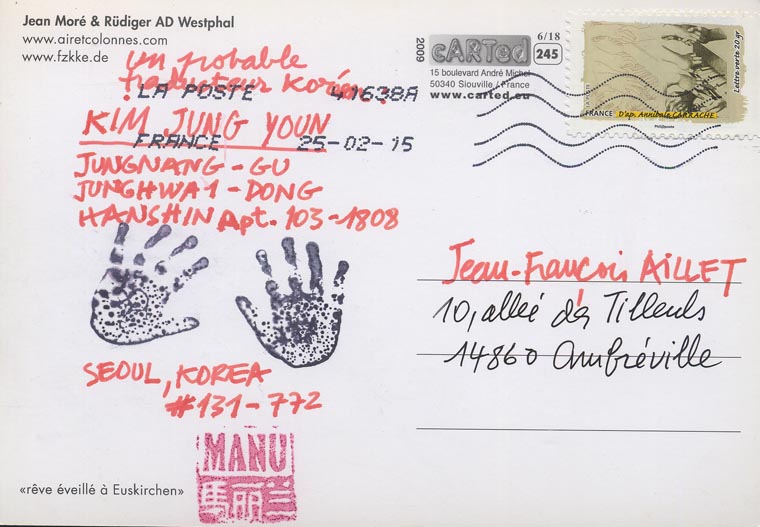 Jean Moré & Rüdiger AD Westphal
www.airetcolonnes.com
www.fzkke.de
un probable
traducteur Koréen:
LA POSTE 41638A
KIM JUNG YOUN
FRANCE 25-02-15
JUNGNANG-GU
JUNGHWA 1-DONG
HANSHIN Apt. 103-1808
SEOUL, KOREA
#131-772
MANU
馬丽兰
«rêve éveillé à Euskirchen»
2009
cARTed
6/18
245
15 boulevard André Michel
50340 Siouville / France
www.carted.eu
Lettre verte 20 gr
FRANCE
D'ap. Annibale CARRACHE
Phil@poste
Jean-François AILLET
10, allée des Tilleuls
14860 Amfréville